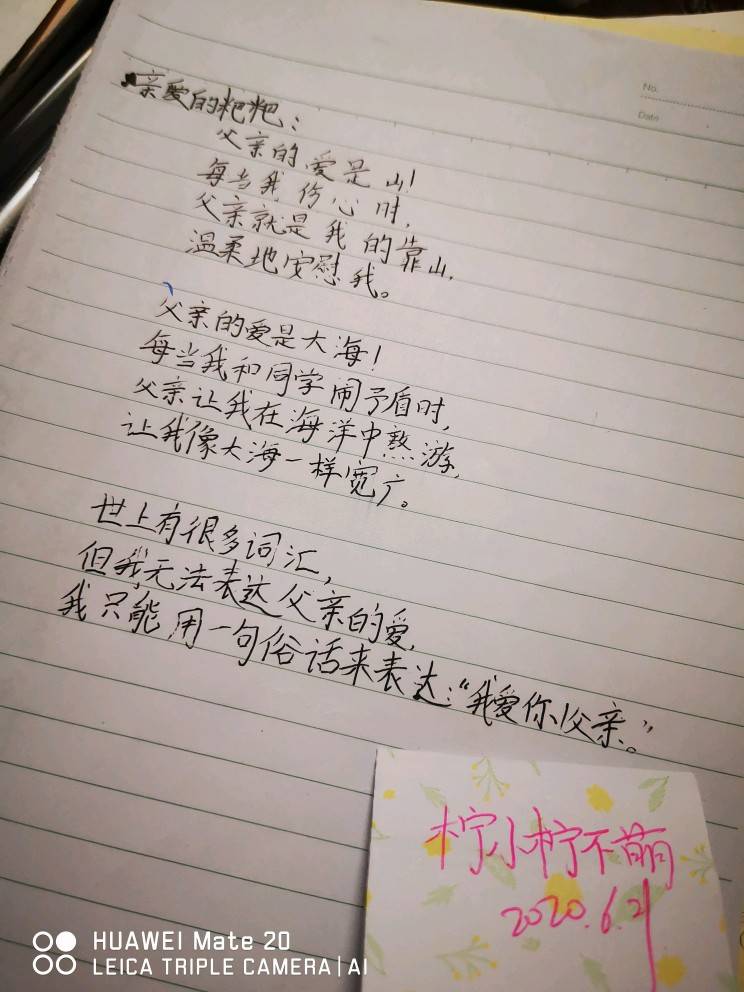 No.
Date
亲爱的粑粑：
父亲的爱是山！
每当我伤心时，
父亲就是我的靠山，
温柔地安慰我。
父亲的爱是大海！
每当我和同学闹予盾时，
父亲让我在海洋中熬游，
让我像大海一样宽广。
世上有很多词汇，
但我无法表达父亲的爱，
我只能用一句俗话来表达：“我爱你父亲。”
柠小柠不萌
2020.6.21
HUAWEI Mate 20
LEICA TRIPLE CAMERA | AI